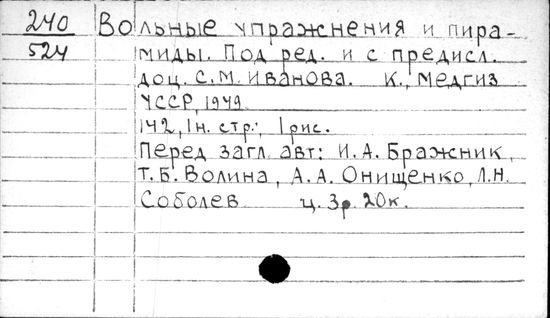 240 Вольные упражнения и пира-
524 миды. Под ред. и с предисл.
доц. С.М. Иванова. К., Медгиз
УССР, 1949.
142, 1н. стр., 1 рис.
Перед загл. авт: И.А. Бражник,
Т.Б. Волина, А.А. Онищенко, Л.Н.
Соболев ц. 3р. 20к.